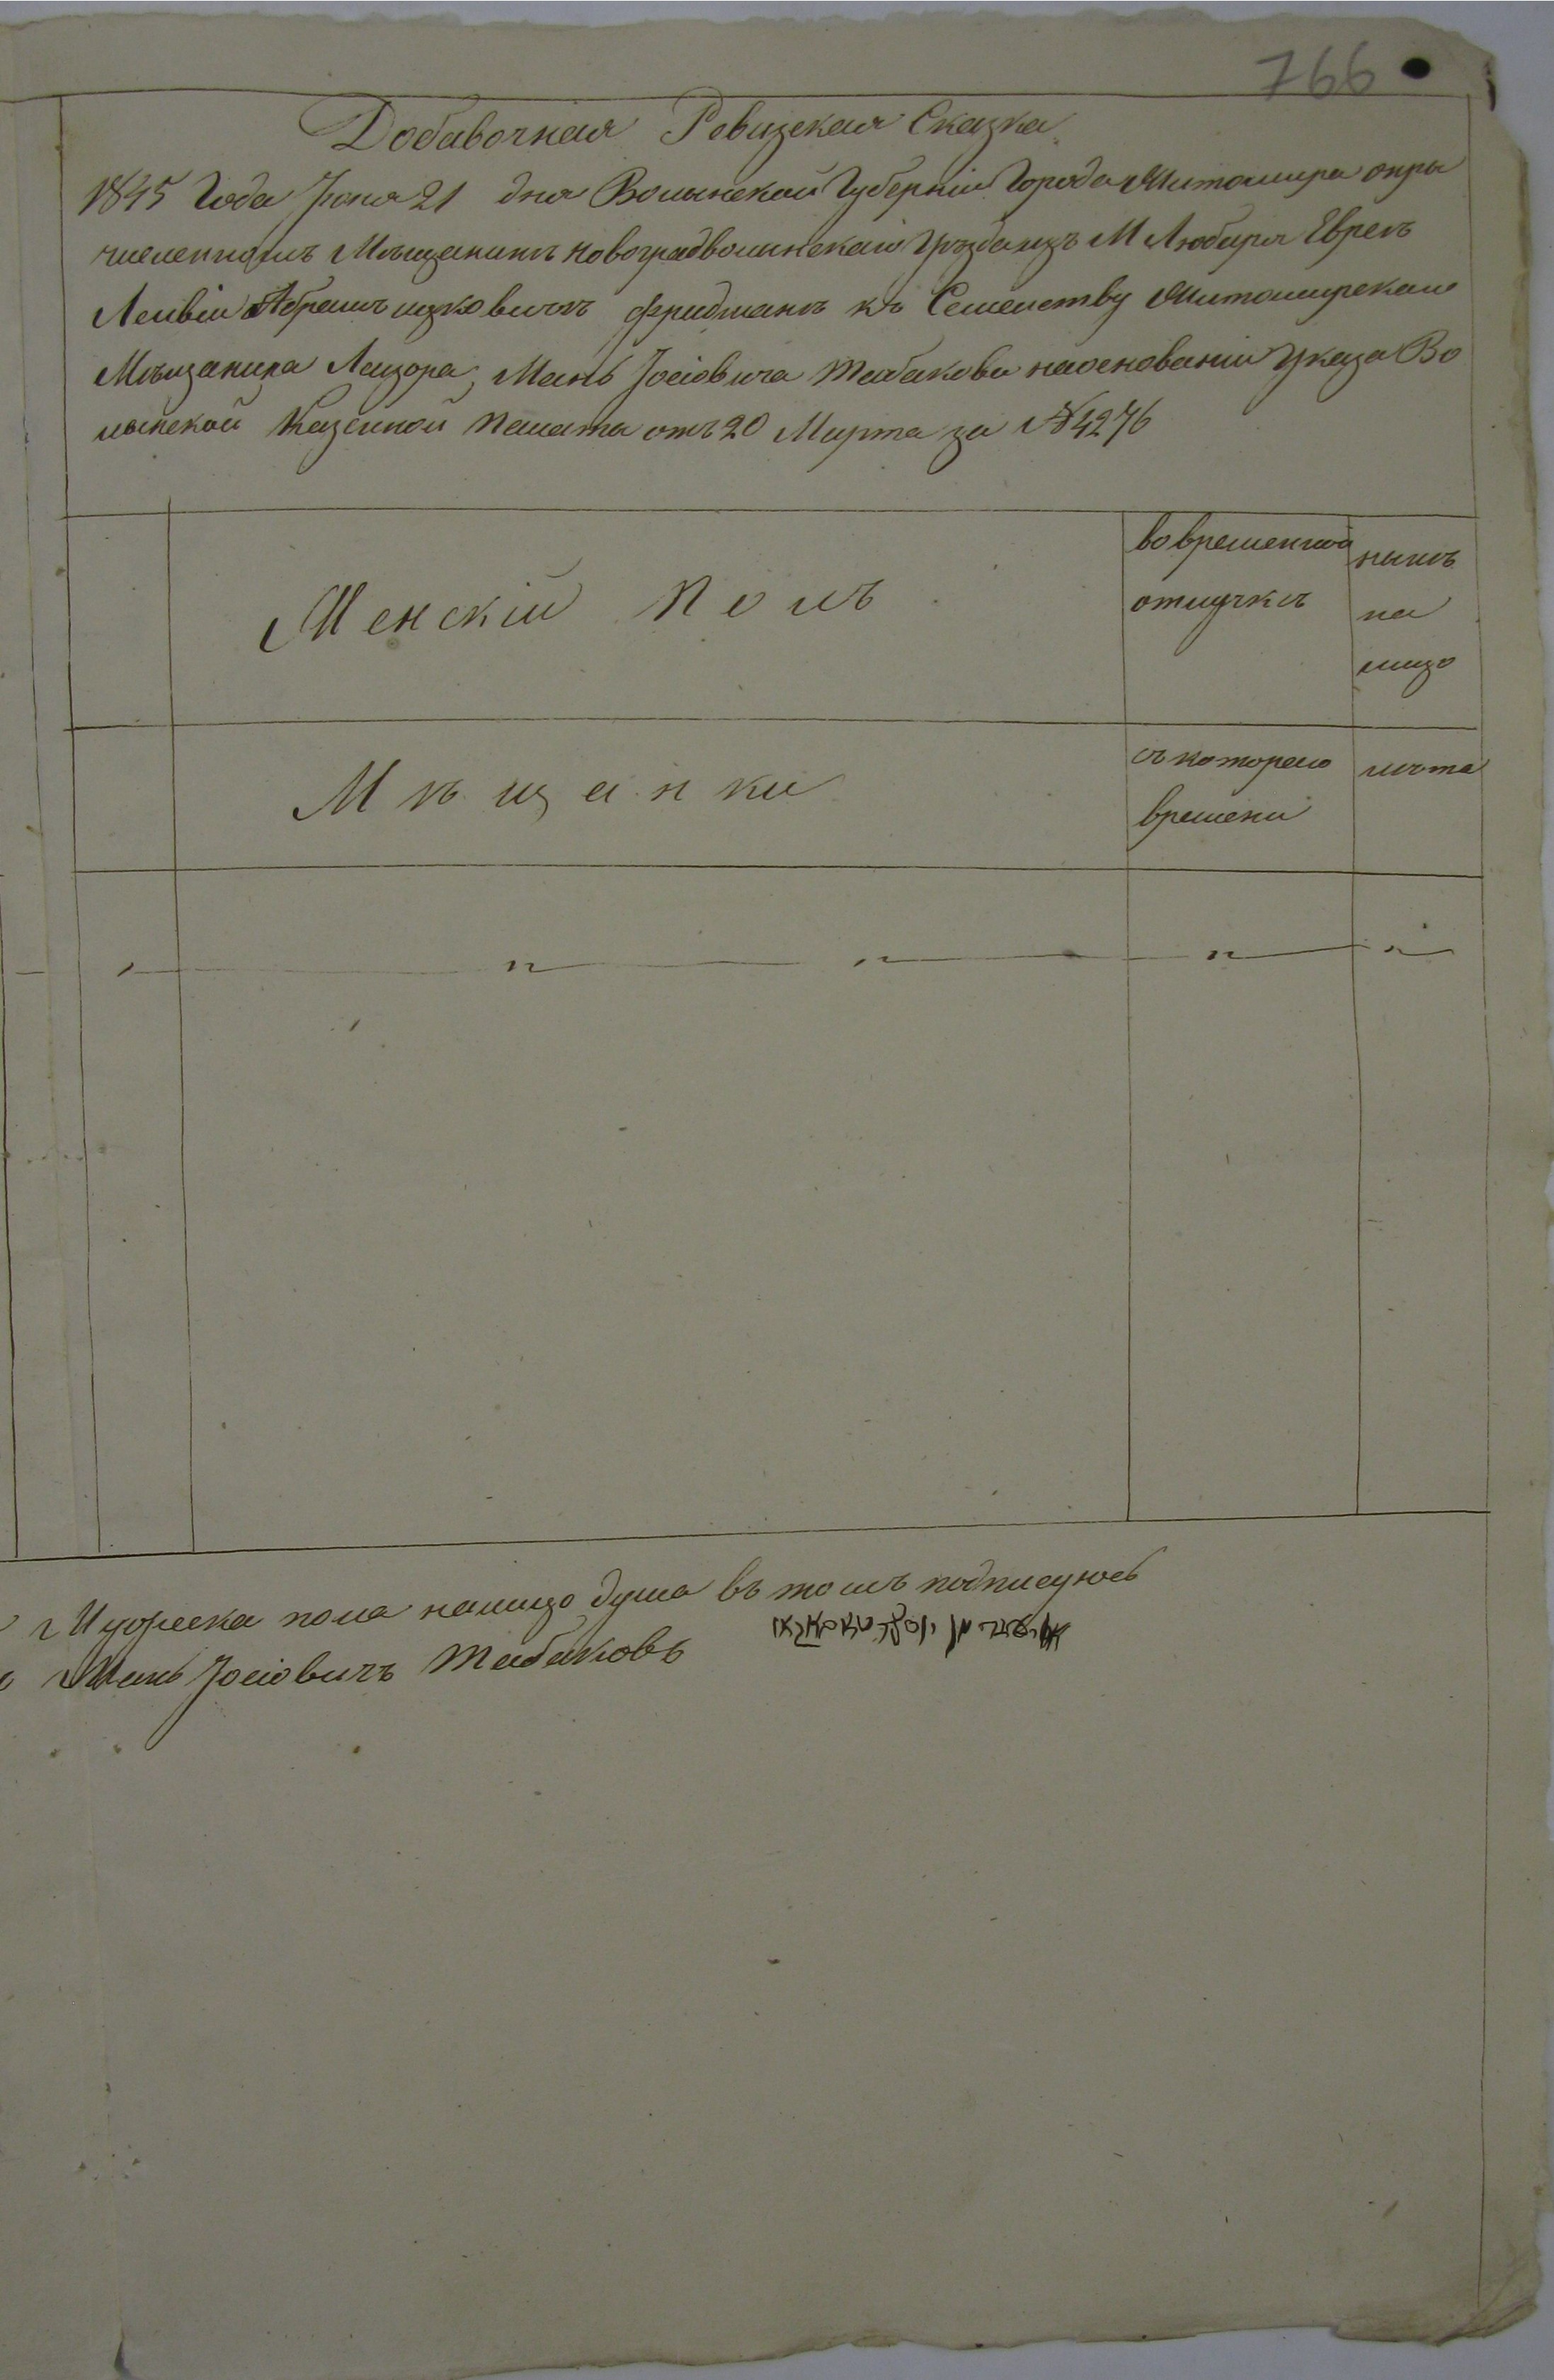 766
Добавочная Ревизская Сказка
1845 Года Іюня 21 дня Волынской Губерніи Города Житомира опри
численномъ Мѣщанинѣ новоградволинскаго Уѣзда изъ М Любара Евреѣ
Лейвіи Абрамъ ицковичѣ фридманѣ къ Семейству Житомирскаго
Мѣщанина Лейзора Мань Іосіовича Табакова наоснованіи Указа Во
лынской Казенной Палаты отъ 20 Марта за № 4276
Женскій полъ
вовременной
отлучкѣ
нынѣ
на
лицо
Мѣщанки
съ котораго
времени
лѣта
Мужеска пола налицо душа въ томъ подписуюсь
Мань Іосіовичъ Табаковъ